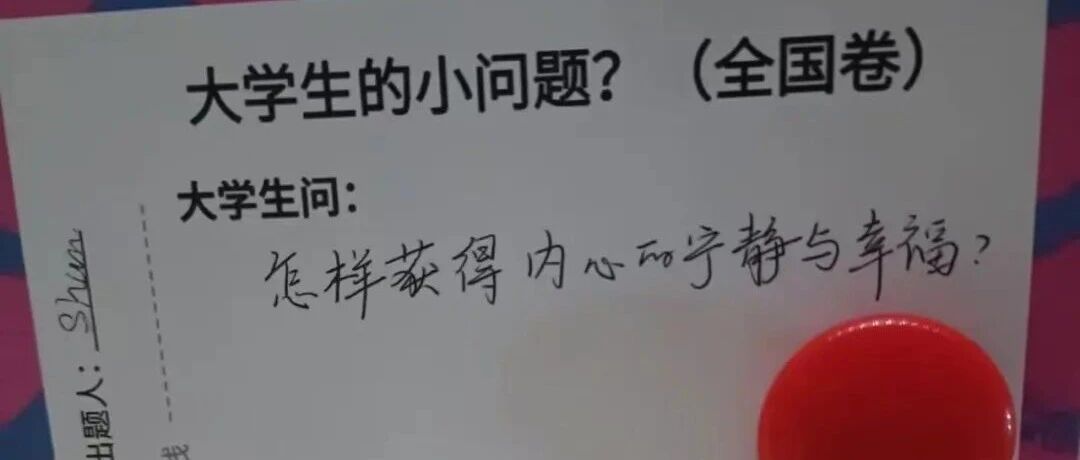 大学生的小问题？（全国卷）
大学生问：
怎样获得内心的宁静与幸福？
出题人：Shun
线